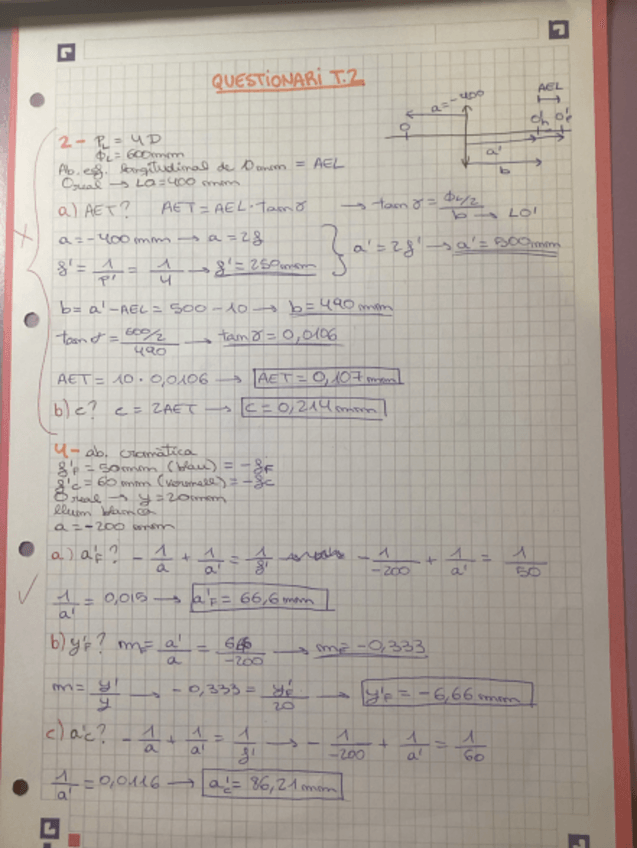 QÜESTIONARI T.2
AEL
a=-400
O
a'
b
2- PL = 4D
ΦL=600mm
longitudinal de 10mm = AEL
Oreal → La=400 mm
a) AET? AET=AEL·tanγ → tanγ = (ΦL/2)/b → LO'
a=-400mm → a=2f
f' = 1/P' = 1/4 → f'=250mm
a'=2f' → a'=500mm
b=a'-AEL=500-10 → b=490mm
tanγ = (600/2)/490 → tanγ=0,0106
AET=10·0,0106 → AET=0,107mm
b) c? c=2AET → c=0,214mm
4- ab. cromàtica
f'F = 50mm (blau) = -fF
f'C = 60mm (vermell) = -fC
Oreal → y=20mm
llum blanca
a=-200 mm
a) a'F? -1/a + 1/a' = 1/f' -1/-200 + 1/a' = 1/50
1/a' = 0,015 → a'F = 66,6mm
b) y'F? mF = a'/a = 66,6/-200 → mF=-0,333
m = y'/y → -0,333 = y'F/20 → y'F=-6,66mm
c) a'C? -1/a + 1/a' = 1/f' → -1/-200 + 1/a' = 1/60
1/a' = 0,0116 → a'C=86,21mm